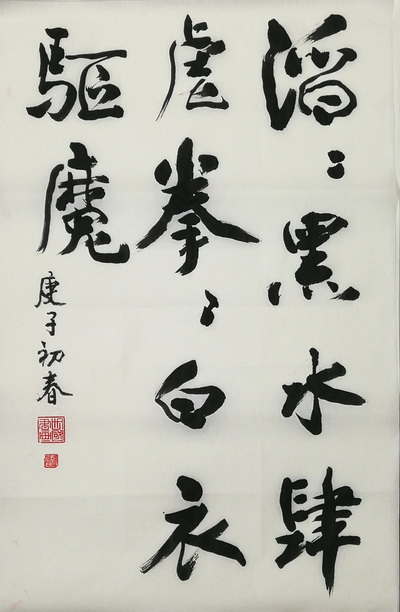 滔〻黑水肆
虐拳〻白衣
驅魔
庚子初春